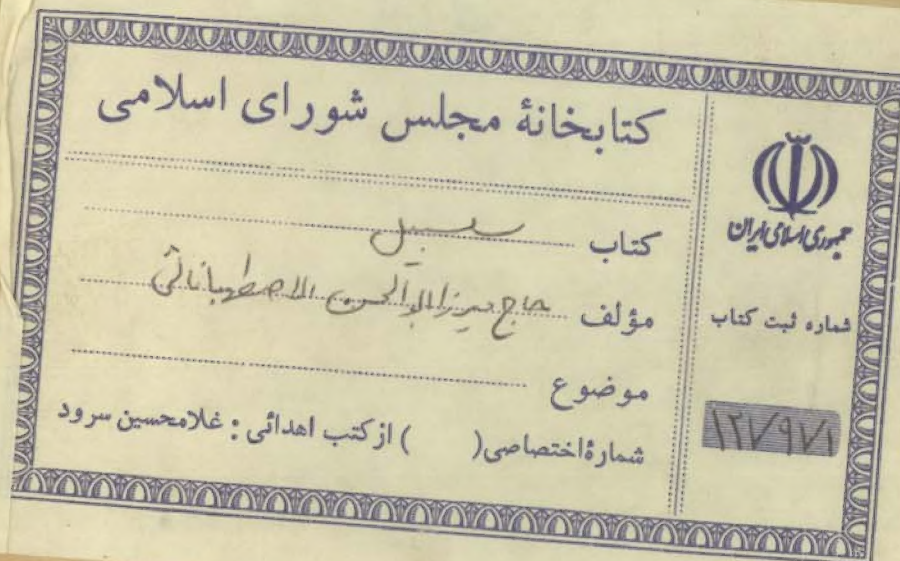 کتابخانهٔ مجلس شورای اسلامی
کتاب سلسبیل
مؤلف حاج میرزا ابوالحسن الاصطهباناتی
موضوع
شمارهٔ اختصاصی ( ) از کتب اهدائی : غلامحسین سرود
جمهوری اسلامی ایران
شماره ثبت کتاب
۱۲۷۹۷۱